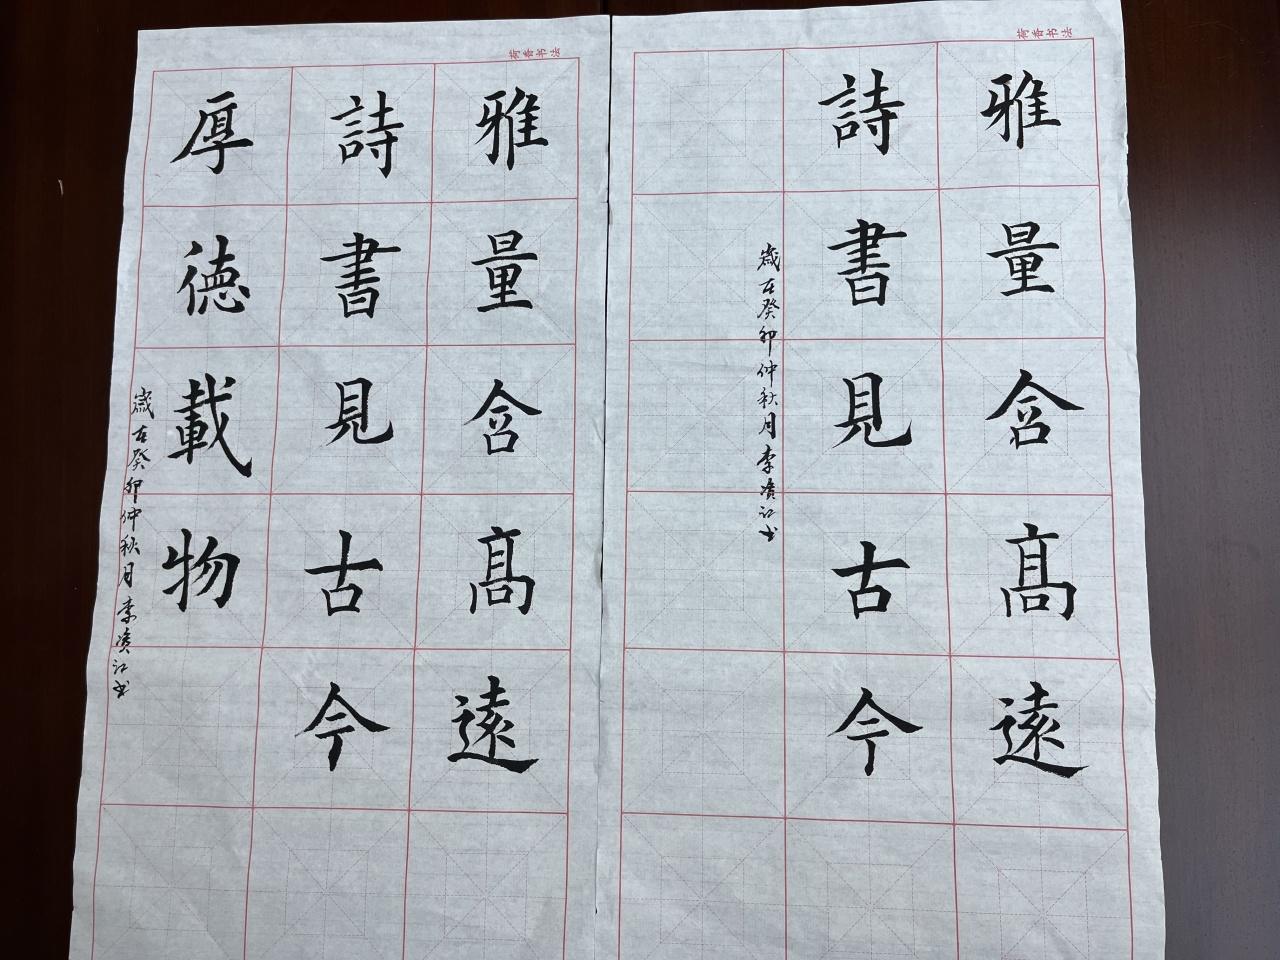 荷香书法
雅量含高遠
詩書見古今
歲在癸卯仲秋月李
江书
荷香书法
雅量含高遠
詩書見古今
厚徳載物
歲在癸卯仲秋月李
江书